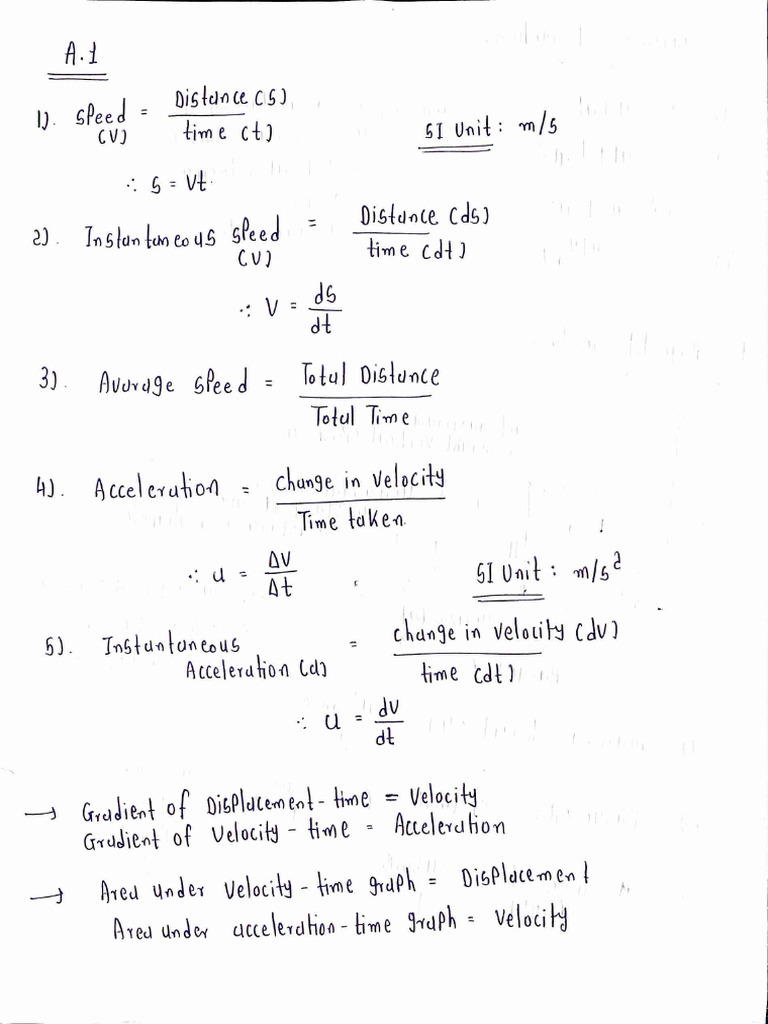 A.1
1). Speed (V) = Distance (s) / time (t)    SI Unit: m/s
∴ s = Vt.
2). Instantaneous speed (V) = Distance (ds) / time (dt)
∴ V = ds/dt
3). Average speed = Total Distance / Total Time
4). Acceleration = Change in Velocity / Time taken
∴ a = ΔV/Δt    SI Unit: m/s²
5). Instantaneous Acceleration (a) = change in velocity (dv) / time (dt)
∴ a = dv/dt
→ Gradient of Displacement-time = Velocity
Gradient of Velocity-time = Acceleration
→ Area under Velocity-time graph = Displacement
Area under acceleration-time graph = Velocity